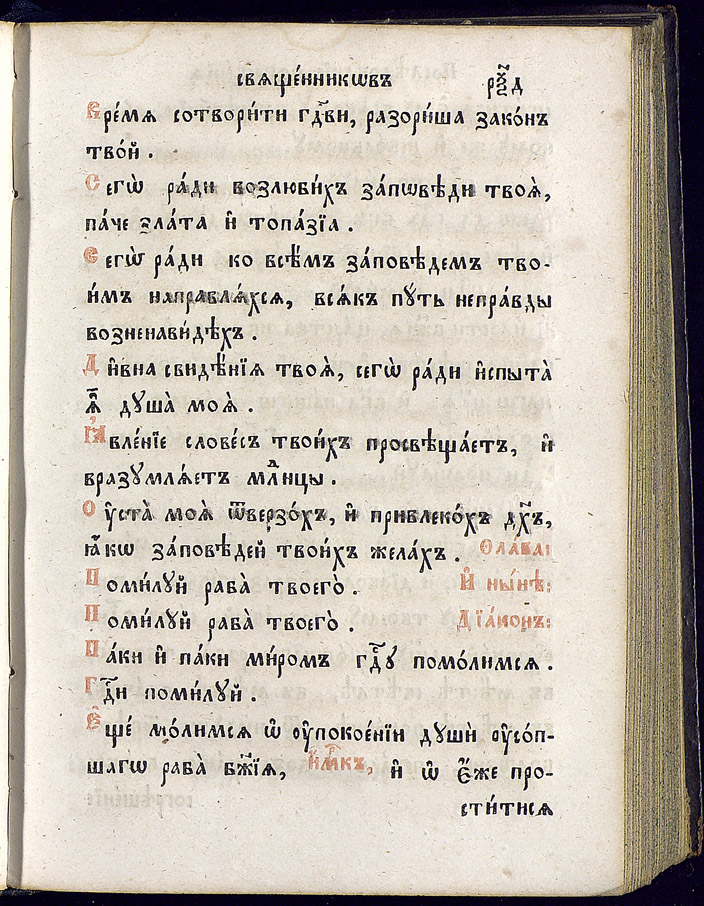 свѧще́нникѡвъ р҃ѯд
Вре́мѧ сотвори́ти гдⷭ҇ви, разори́ша зако́нъ
тво́й .
Сегѡ̀ ра́ди возлюби́хъ за́пѡвѣди твоѧ̀,
па́че ѕла́та и҆ топа́зїа .
Сегѡ̀ ра́ди ко всѣ̑мъ за́повѣдемъ тво-
и́мъ направлѧ́хсѧ, всѧ́къ пꙋ́ть непра́вды
возненави́дѣхъ .
Ди́вна свидѣ̑нїѧ твоѧ̀, сегѡ̀ ра́ди и҆спыта̀
ѧ҆̀ дꙋша̀ моѧ̀ .
Ꙗ҆вле́нїе слове́съ твои́хъ просвѣща́етъ, и҆
вразꙋмлѧ́етъ млⷣнцы .
Оу҆ста̀ моѧ̀ ѿверзо́хъ, и҆ привлеко́хъ дх҃ъ,
ꙗ҆́кѡ за́повѣдей твои́хъ жела́хъ . Сла́ва:
Поми́лꙋй раба̀ твоего̀ . И҆ ны́нѣ:
Поми́лꙋй раба̀ твоего̀ . Дїа́конъ:
Па́ки и҆ па́ки ми́ромъ гдⷭ҇ꙋ помо́лимсѧ .
Гдⷭ҇и поми́лꙋй .
Е҆ще́ мо́лимсѧ ѡ҆ оу҆покое́нїи дꙋшѝ оу҆со́п-
шагѡ раба̀ бж҃їѧ, и҆́м҃къ, и҆ ѡ҆ є҆́же про-
сти́тисѧ